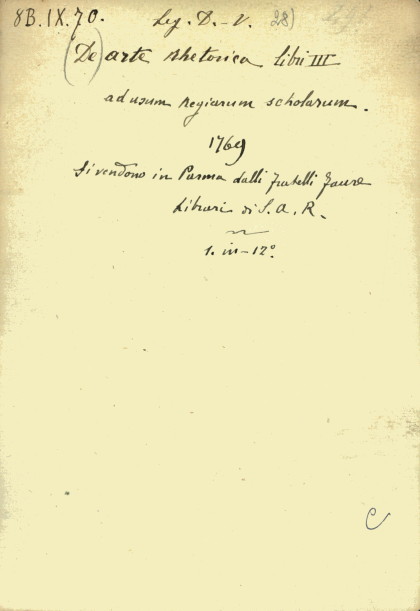 8B.IX.70. Leg. D.-V. 28)
(De) arte rhetorica libri III
ad usum regiarum scholarum.
1769
Si vendono in Parma dalli fratelli Faure
Librari di S. A. R.
1. in-12°.
C